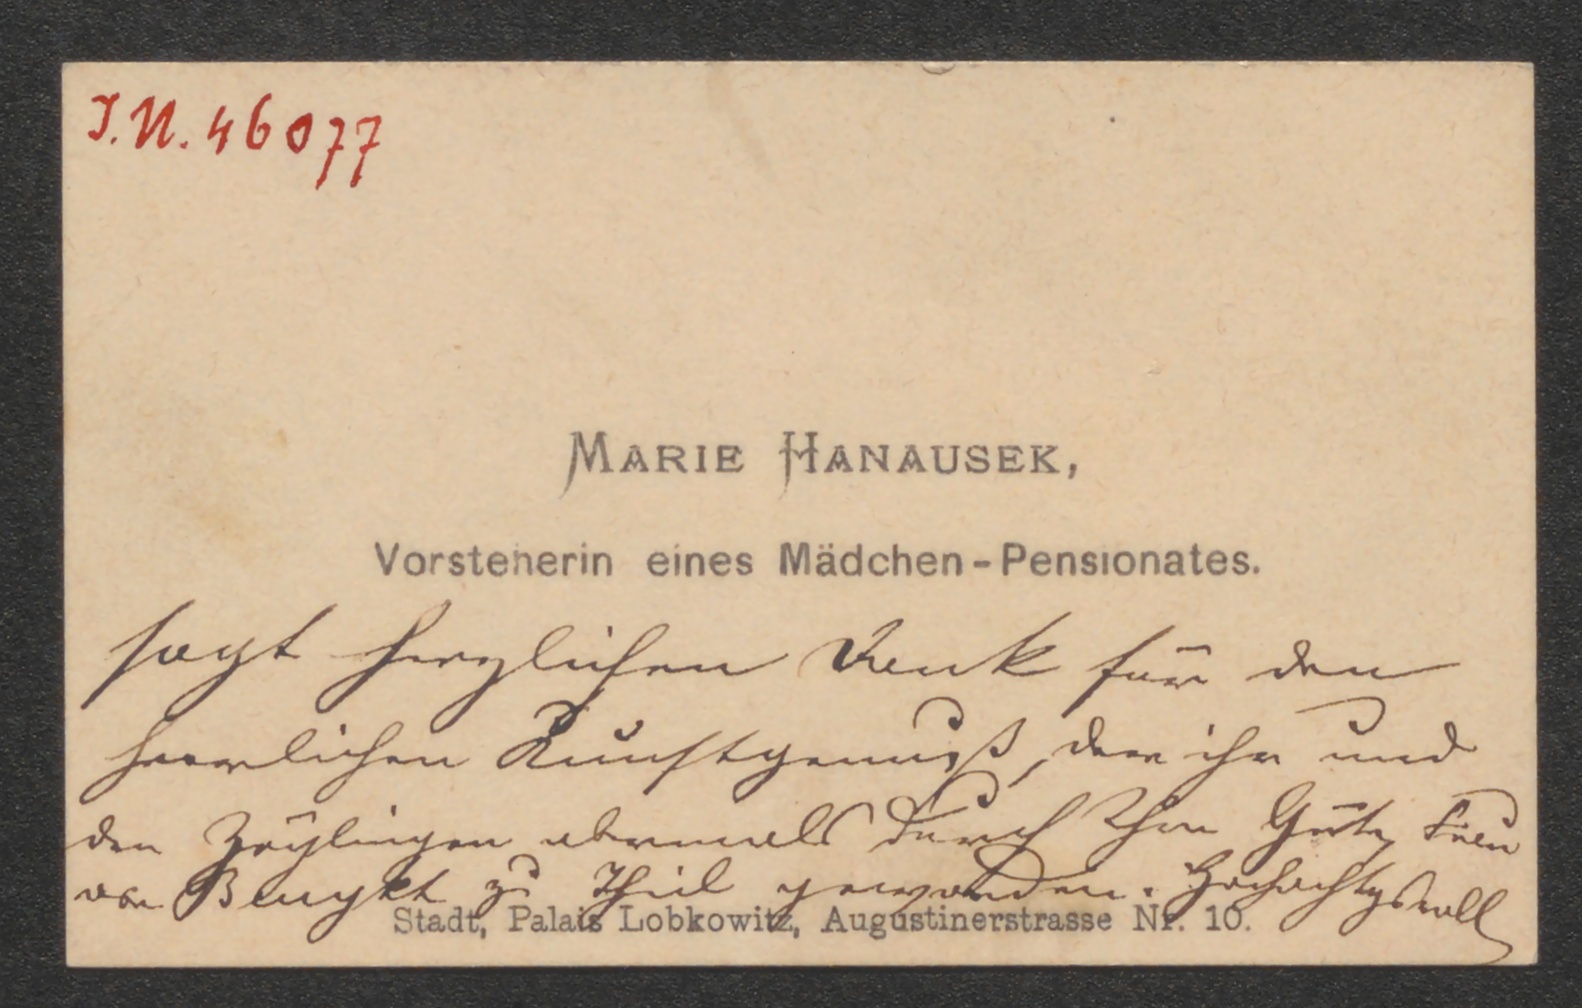 I.N. 46077
MARIE HANAUSEK,
Vorsteherin eines Mädchen-Pensionates.
sagt herzlichen Dank für den
herrlichen Kunstgenuß, der ihr und
den Zöglingen abermals durch Ihre Güte, Frau
zu Theil geworden. Hochachtgsvoll
Stadt, Palais Lobkowitz, Augustinerstrasse Nr. 10.